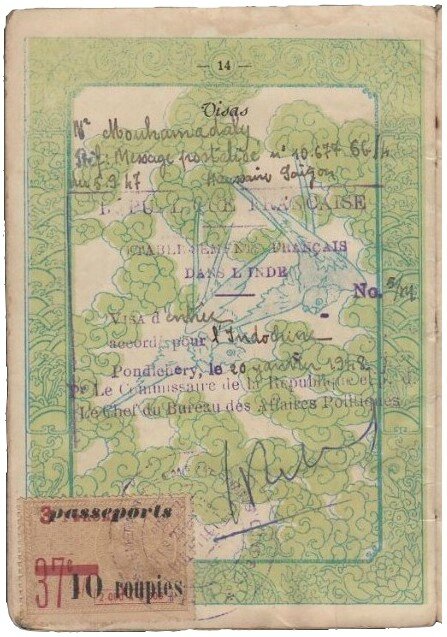 — 14 —
Visas
Mouhamadaly
Réf: Message postalisé n° 10.677 66/
du 5.9.47 Haussaire Saigon
REPUBLIQUE FRANÇAISE
ETABLISSEMENTS FRANÇAIS
DANS L'INDE
No.
Visa d'entrée
accordé pour l'Indochine
Pondichéry, le 20 janvier 1948
Pr Le Commissaire de la République et p. d.
Le Chef du Bureau des Affaires Politiques
passeports
37
10 roupies